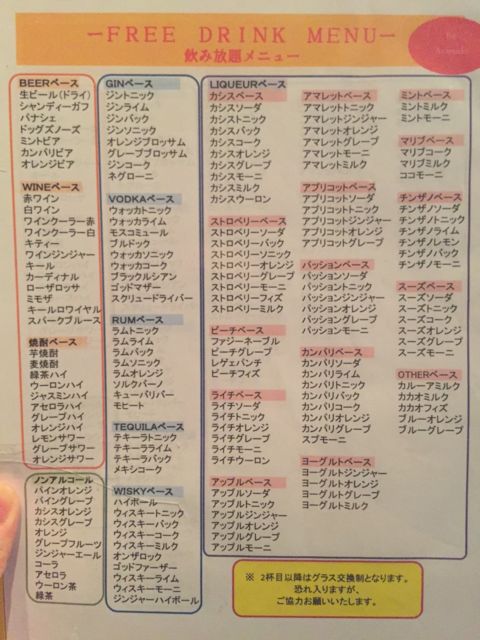 ーFREE DRINK MENUー
飲み放題メニュー
BEERベース
生ビール(ドライ)
シャンディーガフ
パナシェ
ドッグズノーズ
ミントビア
カンパリビア
オレンジビア
WINEベース
赤ワイン
白ワイン
ワインクーラー赤
ワインクーラー白
キティー
ワインジンジャー
キール
カーディナル
ローザロッサ
ミモザ
キールロワイヤル
スパークブルース
焼酎ベース
芋焼酎
麦焼酎
緑茶ハイ
ウーロンハイ
ジャスミンハイ
アセロラハイ
グレープハイ
オレンジハイ
レモンサワー
グレープサワー
オレンジサワー
ノンアルコール
パインオレンジ
パイングレープ
カシスオレンジ
カシスグレープ
オレンジ
グレープフルーツ
ジンジャーエール
コーラ
アセロラ
ウーロン茶
緑茶
GINベース
ジントニック
ジンライム
ジンバック
ジンソニック
オレンジブロッサム
グレープブロッサム
ジンコーク
ネグローニ
VODKAベース
ウォッカトニック
ウォッカライム
モスコミュール
ブルドック
ウォッカソニック
ウォッカコーク
ブラックルシアン
ゴッドマザー
スクリュードライバー
RUMベース
ラムトニック
ラムライム
ラムバック
ラムソニック
ラムオレンジ
ソルクバーノ
キューバリバー
モヒート
TEQUILAベース
テキーラトニック
テキーラライム
テキーラバック
メキシコーク
WISKYベース
ハイボール
ウィスキートニック
ウィスキーバック
ウィスキーコーク
ウィスキーミルク
オンザロック
ゴッドファーザー
ウィスキーライム
ウィスキーモーニ
ジンジャーハイボール
LIQUEURベース
カシスベース
カシスソーダ
カシストニック
カシスバック
カシスコーク
カシスオレンジ
カシスグレープ
カシスモーニ
カシスミルク
カシスウーロン
ストロベリーベース
ストロベリーソーダ
ストロベリーバック
ストロベリーソニック
ストロベリーオレンジ
ストロベリーグレープ
ストロベリーモーニ
ストロベリーフィズ
ストロベリーミルク
ピーチベース
ファジーネーブル
ピーチグレープ
レゲェパンチ
ピーチフィズ
ライチベース
ライチソーダ
ライチトニック
ライチオレンジ
ライチグレープ
ライチモーニ
ライチウーロン
アップルベース
アップルソーダ
アップルトニック
アップルジンジャー
アップルオレンジ
アップルグレープ
アップルモーニ
アマレットベース
アマレットトニック
アマレットジンジャー
アマレットオレンジ
アマレットグレープ
アマレットモーニ
アマレットミルク
アプリコットベース
アプリコットソーダ
アプリコットトニック
アプリコットジンジャー
アプリコットオレンジ
アプリコットグレープ
パッションベース
パッションソーダ
パッショントニック
パッションジンジャー
パッションオレンジ
パッショングレープ
パッションモーニ
カンパリベース
カンパリソーダ
カンパリライム
カンパリトニック
カンパリバック
カンパリコーク
カンパリオレンジ
カンパリグレープ
スプモーニ
ヨーグルトベース
ヨーグルトジンジャー
ヨーグルトオレンジ
ヨーグルトグレープ
ヨーグルトミルク
ミントベース
ミントミルク
ミントモーニ
マリブベース
マリブコーク
マリブミルク
ココモーニ
チンザノベース
チンザノソーダ
チンザノトニック
チンザノライム
チンザノレモン
チンザノバック
チンザノモーニ
スーズベース
スーズソーダ
スーズトニック
スーズコーク
スーズオレンジ
スーズグレープ
スーズモーニ
OTHERベース
カルーアミルク
カカオミルク
カカオフィズ
ブルーオレンジ
ブルーグレープ
※ 2杯目以降はグラス交換制となります。
恐れ入りますが、
ご協力お願いいたします。